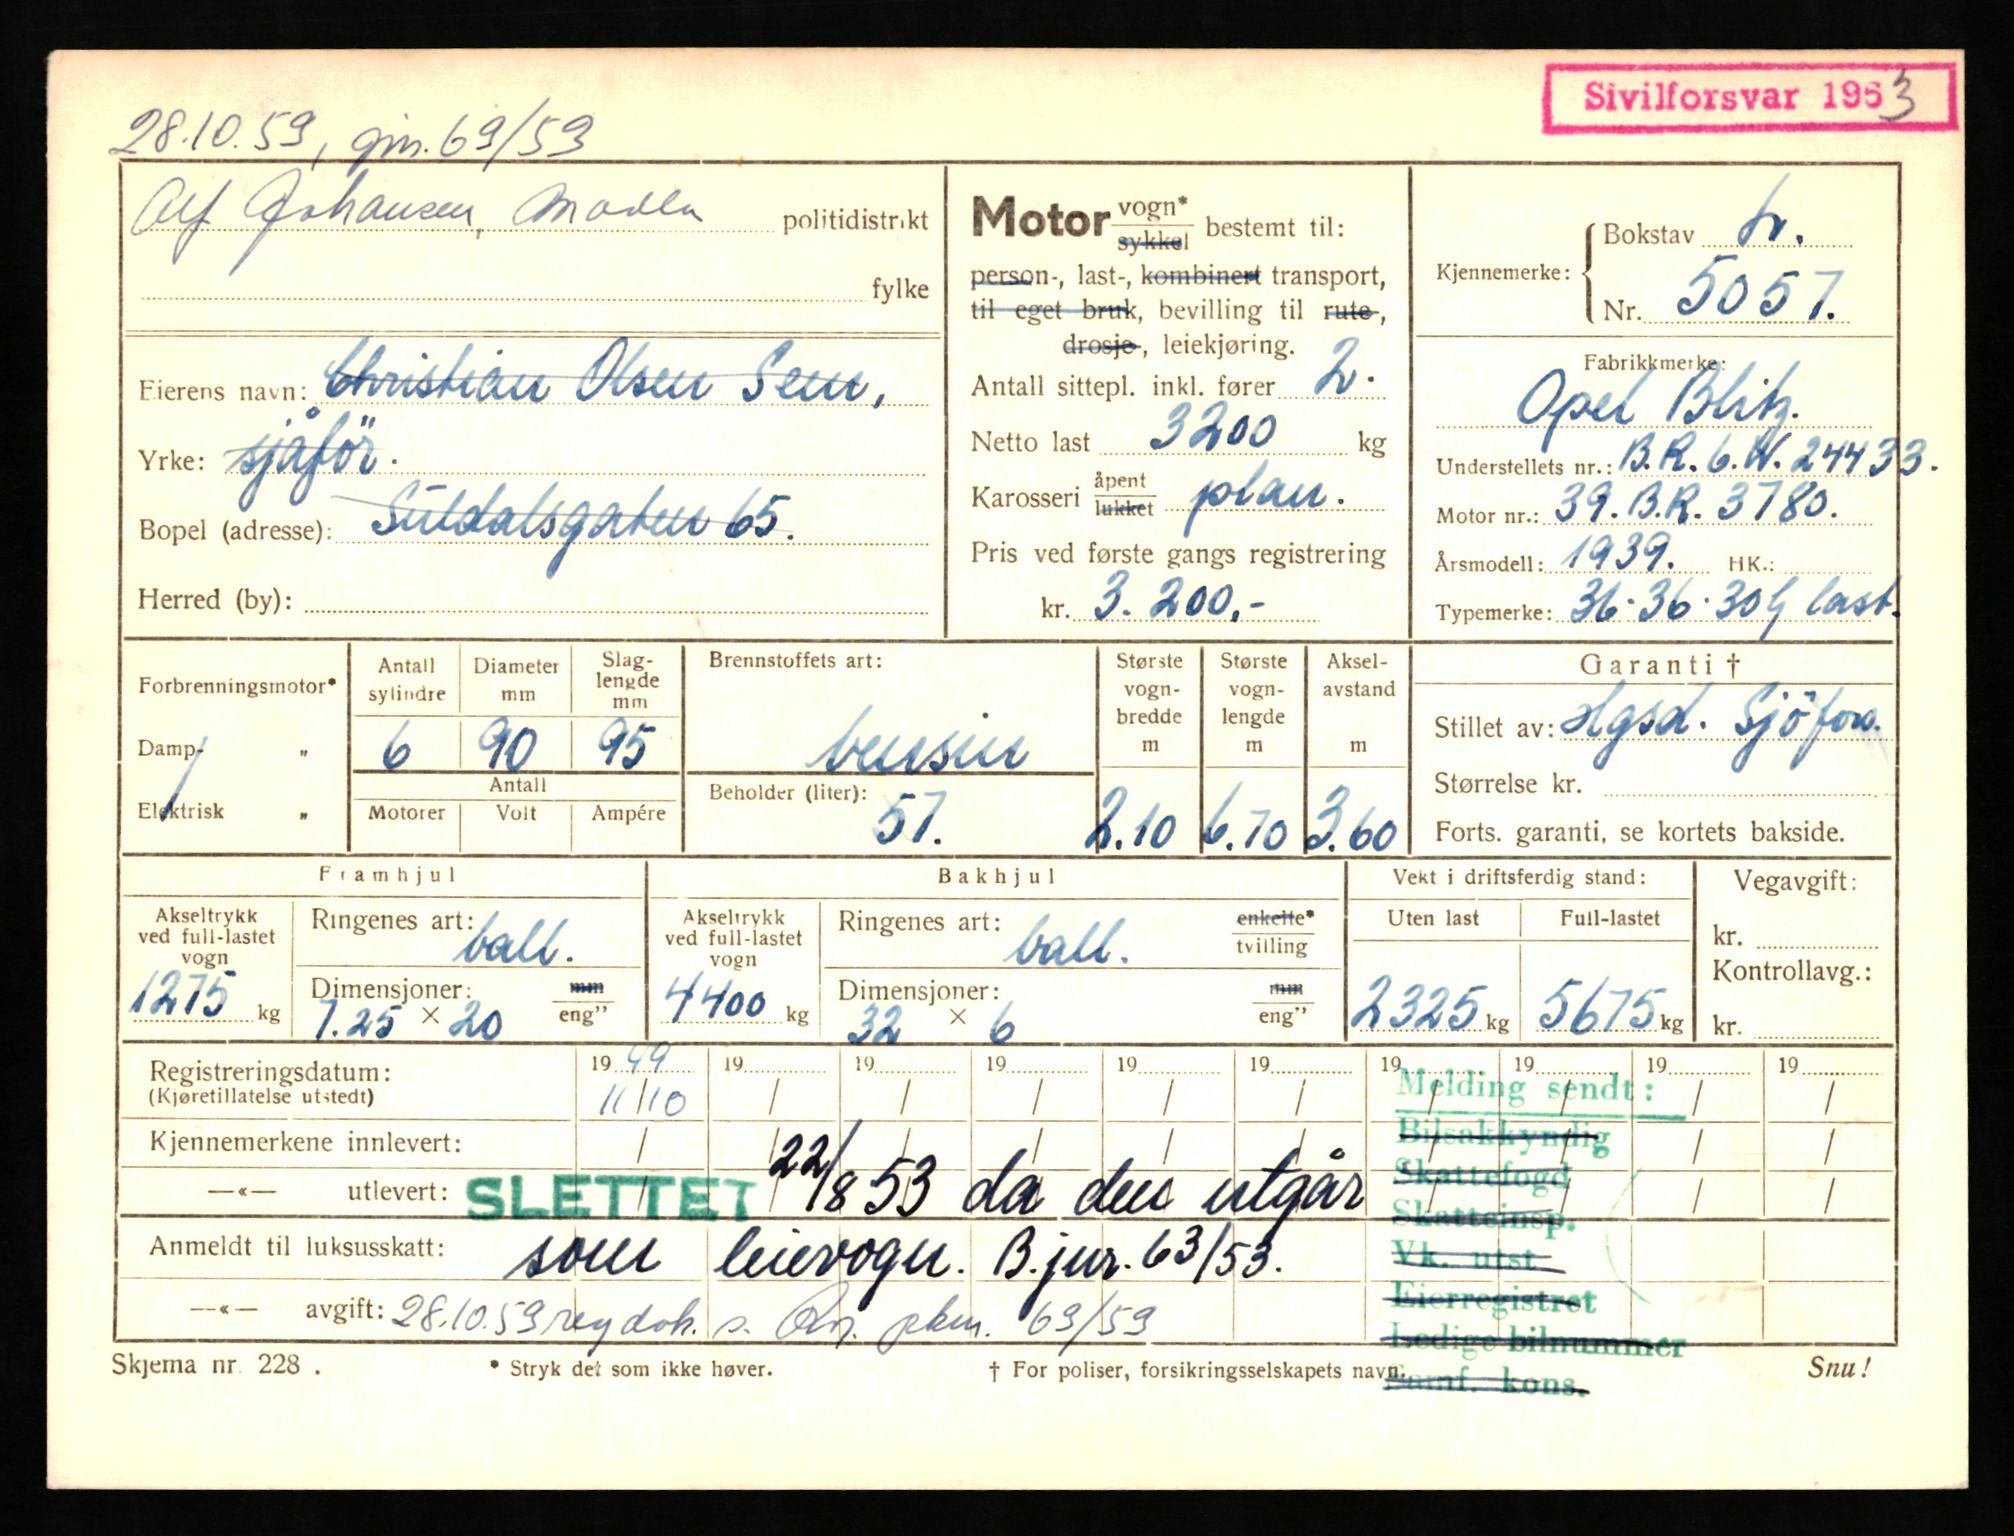 Sivilforsvar 1953
28.10.59, 69/59
Alf Johansen, Madla politidistrikt
fylke
Eierens navn: Christian Olsen Sem,
Yrke: sjåfør.
Bopel (adresse): Suldalsgaten 65.
Herred (by):
Motor vogn*
sykkel bestemt til:
person-, last-, kombinert transport,
til eget bruk, bevilling til rute-,
drosje-, leiekjøring.
Antall sittepl. inkl. fører 2.
Netto last 3200 kg
Karosseri åpent
lukket plan.
Pris ved første gangs registrering
kr. 3.200,-
Kjennemerke: Bokstav
Nr. 5057.
Fabrikkmerke:
Opel Blitz.
Understellets nr.: B.R.6.W. 24433.
Motor nr.: 39.B.R. 3780.
Årsmodell: 1939. HK.:
Typemerke: 36-36-30 last.
Forbrenningsmotor*
Damp- „
Elektrisk „
Antall sylindre 6
Diameter mm 90
Slaglengde mm 95
Antall
Motorer Volt Ampére
Brennstoffets art:
bensin
Beholder (liter):
57.
Største vognbredde m 2.10
Største vognlengde m 6.70
Akselavstand m 3.60
Garanti †
Stillet av: Hgsd. Sjöfors.
Størrelse kr.
Forts. garanti, se kortets bakside.
Framhjul
Akseltrykk ved full-lastet vogn 1275 kg
Ringenes art: ball.
Dimensjoner: 7.25 × 20 mm
eng”
Bakhjul
Akseltrykk ved full-lastet vogn 4400 kg
Ringenes art: ball. enkelte*
tvilling
Dimensjoner: 32 × 6 mm
eng”
Vekt i driftsferdig stand:
Uten last Full-lastet
2325 kg 5675 kg
Vegavgift:
kr.
Kontrollavg.:
kr.
Registreringsdatum: 1949 19 19 19 19 19 19 19 19 19
(Kjøretillatelse utstedt) 11/10 / / / / / / / / /
Kjennemerkene innlevert:
—«— utlevert: SLETTET 22/8 53 da den utgår
Anmeldt til luksusskatt: som leievogn. B.jnr. 63/53.
—«— avgift: 28.10.59 69/59
Melding sendt:
Bilsakkyndig
Skattefogd
Skatteinsp.
Vk. utst
Eierregistret
Ledige bilnummer
Samf. kons.
Skjema nr. 228.
* Stryk det som ikke høver.
† For poliser, forsikringsselskapets navn.
Snu!